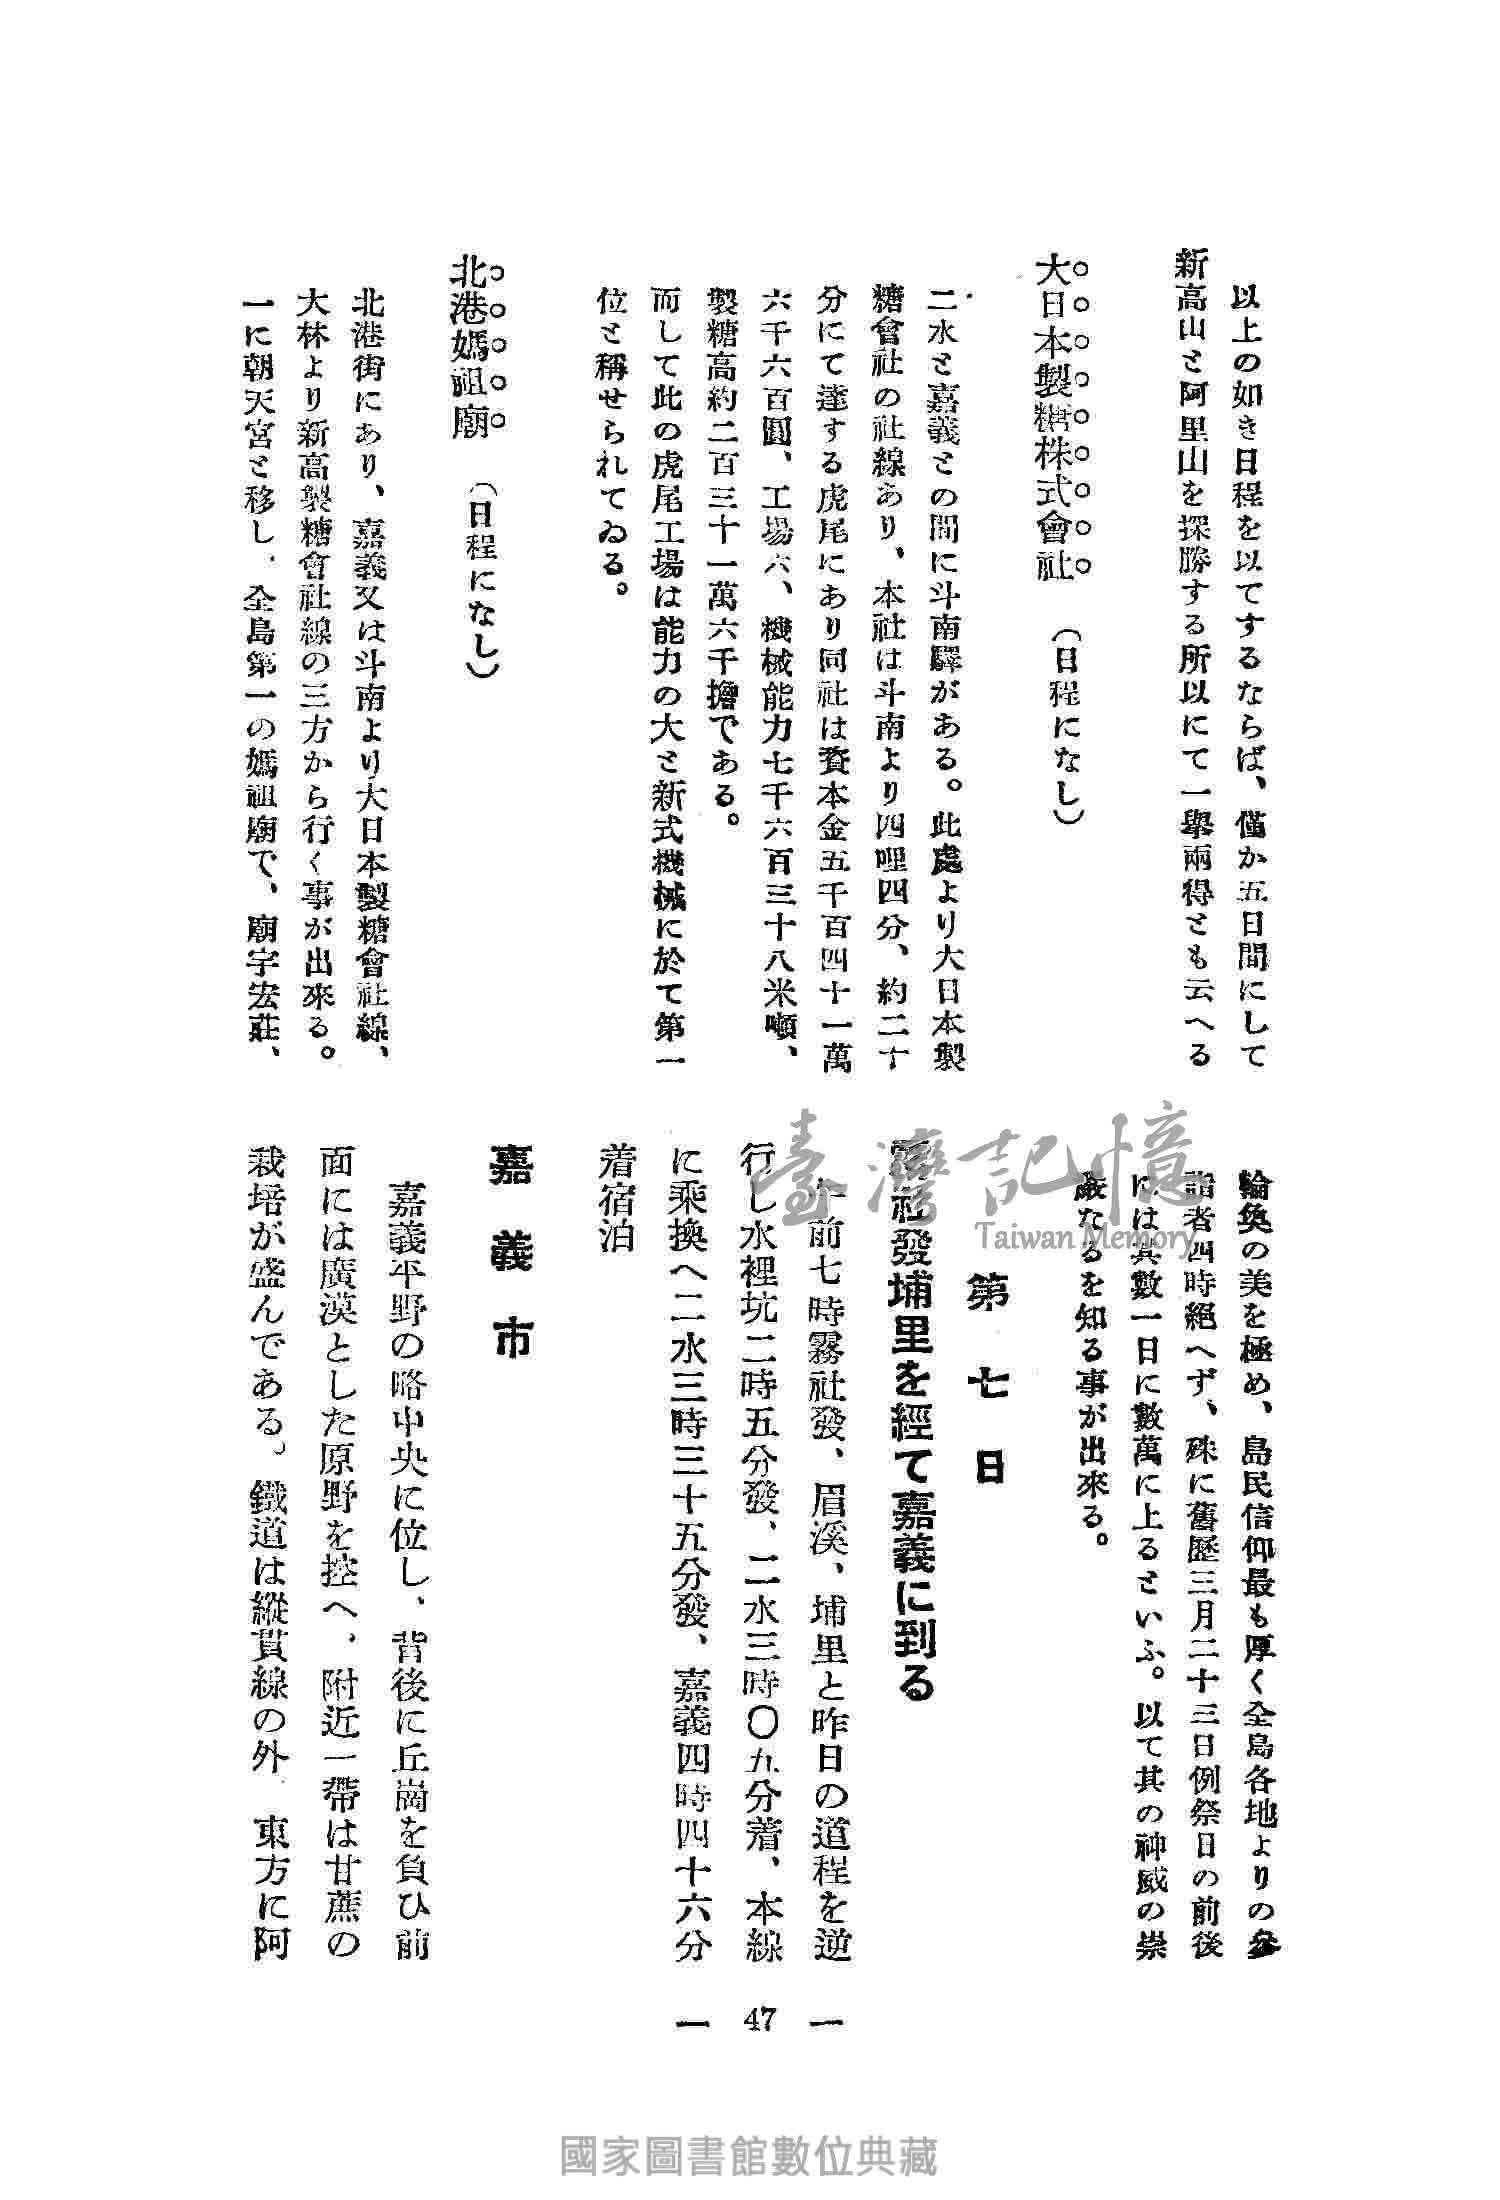 以上の如き日程を以てするならば、僅か五日間にして
新高山と阿里山を探勝する所以にて一擧兩得とも云へる
大日本製糖株式會社　（日程になし）
二水と嘉義との間に斗南驛がある。此處より大日本製
糖會社の社線あり、本社は斗南より四哩四分、約二十
分にて達する虎尾にあり同社は資本金五千百四十一萬
六千六百圓、工場六、機械能力七千六百三十八米噸、
製糖高約二百三十一萬六千擔である。
而して此の虎尾工場は能力の大と新式機械に於て第一
位と稱せられてゐる。
北港媽祖廟　（日程になし）
北港街にあり、嘉義又は斗南より大日本製糖會社線、
大林より新高製糖會社線の三方から行く事が出來る。
一に朝天宮と移し、全島第一の媽祖廟で、廟宇宏莊、
輪奐の美を極め、島民信仰最も厚く全島各地よりの參
詣者四時絕へず、殊に舊歷三月二十三日例祭日の前後
には其數一日に數萬に上るといふ。以て其の神威の崇
嚴なるを知る事が出來る。
第七日
霧社發埔里を經て嘉義に到る
午前七時霧社發、眉溪、埔里と昨日の道程を逆
行し水裡坑二時五分發、二水三時〇九分着、本線
に乘換へ二水三時三十五分發、嘉義四時四十六分
着宿泊
嘉義市
嘉義平野の略中央に位し、背後に丘崗を負ひ前
面には廣漠とした原野を控へ、附近一帶は甘蔗の
栽培が盛んである。鐵道は縱貫線の外、東方に阿
— 47 —
臺灣記憶
Taiwan Memory
國家圖書館數位典藏